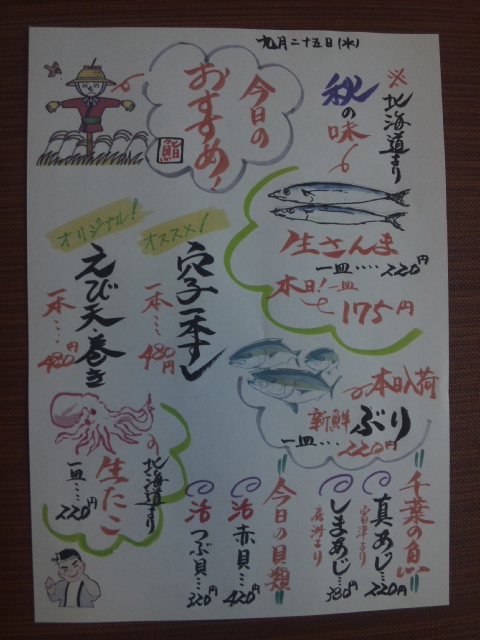 九月二十五日(水)
今日の
おすすめ!
鮨
※北海道より
秋の味
生さんま
一皿‥‥220円
本日!一皿
175円
オススメ!
穴子一本すし
一本‥‥480円
オリジナル!
えび天巻き
一本‥‥480円
本日入荷
新鮮ぶり
一皿‥‥220円
北海道より
生たこ
一皿‥‥220円
千葉の魚
真あじ‥‥220円
富津より
しまあじ‥‥380円
今日の貝類
活赤貝‥‥420円
活つぶ貝‥‥320円